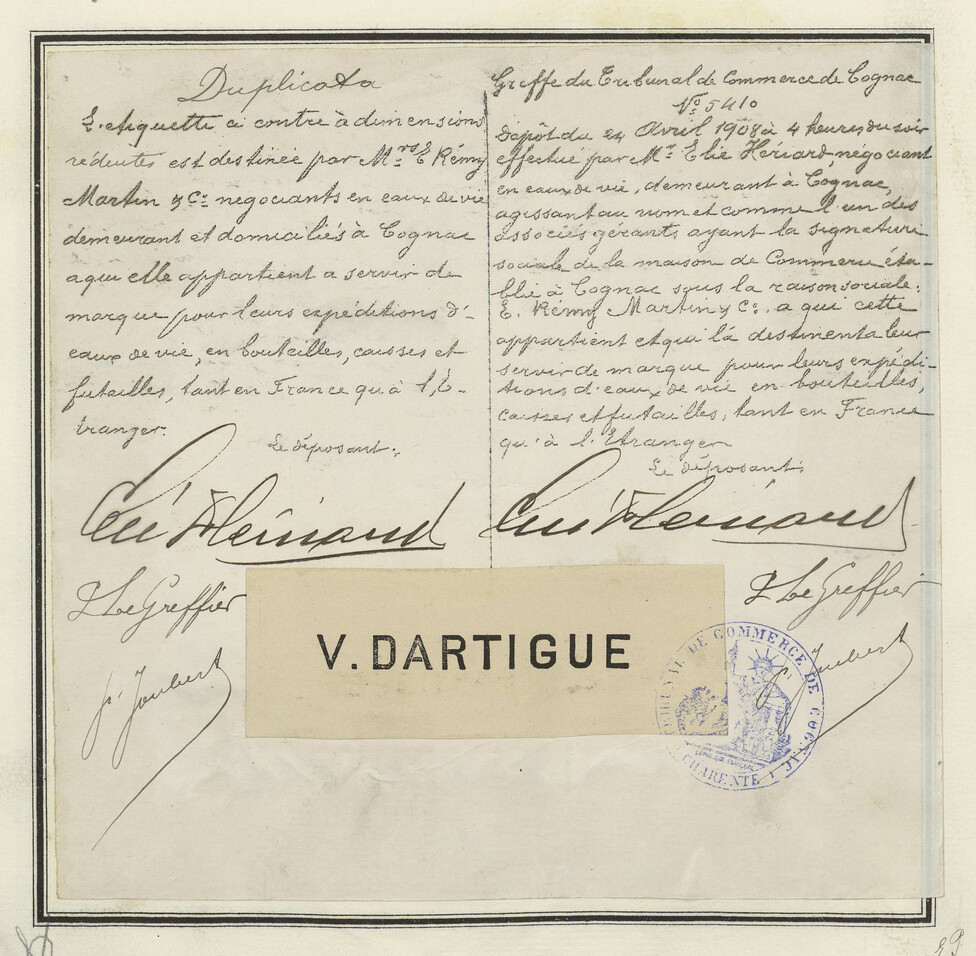 Duplicata
L'etiquette ci contre à dimensions
réduites est destinée par Mrs E. Rémy
Martin & Cie negociants en eaux de vie
demeurant et domiciliés à Cognac
a qui elle appartient a servir de
marque pour leurs expéditions d'-
eaux de vie, en bouteilles, caisses et
futailles, tant en France qu'à l'E-
tranger.
Le déposant:
Elie Hériard
Le Greffier
Joubert
Greffe du Tribunal de Commerce de Cognac
No 5410
Dépôt du 24 Avril 1908 à 4 heures du soir
effectué par Mr Elie Hériard, négociant
en eaux de vie, demeurant à Cognac,
agissant au nom et comme l'un des
associés gérants ayant la signature
sociale de la maison de Commerce éta-
blie à Cognac sous la raison sociale:
E. Rémy Martin & Co. a qui cette
appartient et qui la destinent a leur
servir de marque pour leurs expédi-
tions d'eaux de vie en bouteilles,
caisses et futailles, tant en France
qu'à l'Etranger
Le déposant:
Elie Hériard
Le Greffier
Joubert
V. DARTIGUE
TRIBUNAL DE COMMERCE DE COGNAC
CHARENTE